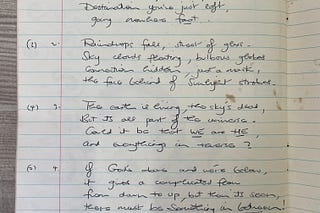 Destination you're just left,
going nowhere fast.
(2) 2. Raindrops fall, sheet of glass.
Sky clouds floating, bulbous globes
Connection hidden, just a mask,
the face behind of Sunlight strobes.
(4) 3. The earth is living, the sky's dead,
But It's all part of the universe.
Could it be that WE are HE,
and everything in reverse?
(5) 4 If God's above and we're below,
it gives a complicated
from down to up, but then It's seen,
there must be something in between!